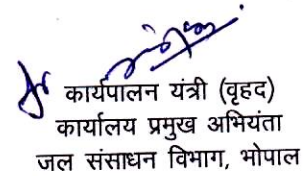 कार्यपालन यंत्री (वृहद)
कार्यालय प्रमुख अभियंता
जल संसाधन विभाग, भोपाल